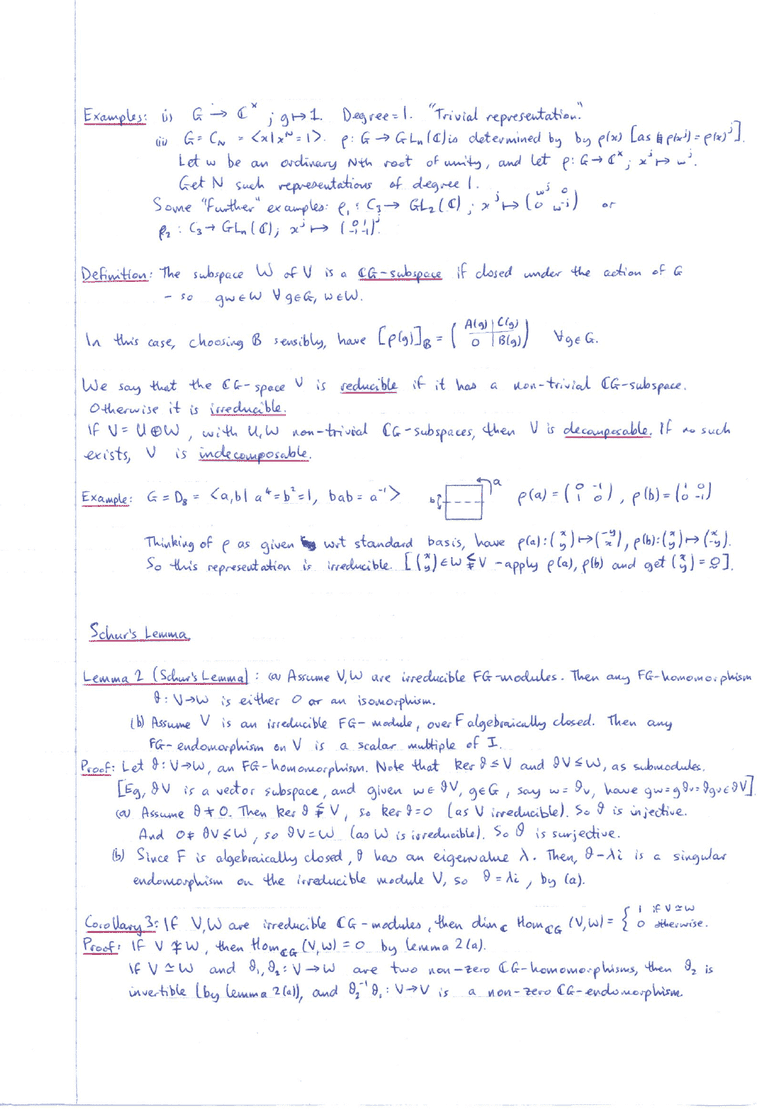 Examples: (i) G → ℂ^× ; g ↦ 1. Degree = 1. "Trivial representation."
(ii) G = C_N = <x | x^N = 1>. ρ: G → GL_n(ℂ) is determined by by ρ(x) [as ρ(x^j) = ρ(x)^j].
Let ω be an ordinary Nth root of unity, and let ρ: G → ℂ^× ; x^j ↦ ω^j.
Get N such representations of degree 1.
Some "Further" examples: ρ_1 : C_3 → GL_2(ℂ) ; x^j ↦ (ω^j 0 / 0 ω^-j) or
ρ_2 : C_3 → GL_n(ℂ) ; x^j ↦ (0 1 / -1 -1)^j.
Definition: The subspace W of V is a ℂG-subspace if closed under the action of G
- so gw ∈ W ∀ g ∈ G, w ∈ W.
In this case, choosing B sensibly, have [ρ(g)]_B = (A(g) | C(g) / 0 | B(g)) ∀ g ∈ G.
We say that the ℂG-space V is reducible if it has a non-trivial ℂG-subspace.
Otherwise it is irreducible.
If V = U ⊕ W, with U, W non-trivial ℂG-subspaces, then V is decomposable. If no such
exists, V is indecomposable.
Example: G = D_8 = <a, b | a^4 = b^2 = 1, bab = a^-1> b a ρ(a) = (0 -1 / 1 0), ρ(b) = (1 0 / 0 -1)
Thinking of ρ as given wrt standard basis, have ρ(a): (x / y) ↦ (-y / x), ρ(b): (x / y) ↦ (x / -y).
So this representation is irreducible. [(x / y) ∈ W ⪇ V - apply ρ(a), ρ(b) and get (x / y) = 0].
Schur's Lemma
Lemma 2 (Schur's Lemma): (a) Assume V, W are irreducible FG-modules. Then any FG-homomorphism
ϑ: V → W is either 0 or an isomorphism.
(b) Assume V is an irreducible FG-module, over F algebraically closed. Then any
FG-endomorphism on V is a scalar multiple of I.
Proof: Let ϑ: V → W, an FG-homomorphism. Note that ker ϑ ≤ V and ϑV ≤ W, as submodules.
[Eg, ϑV is a vector subspace, and given w ∈ ϑV, g ∈ G, say w = ϑv, have gw = gϑv = ϑgv ∈ ϑV]
(a) Assume ϑ ≠ 0. Then ker ϑ ⪇ V, so ker ϑ = 0 (as V irreducible). So ϑ is injective.
And 0 ≠ ϑV ≤ W, so ϑV = W (as W is irreducible). So ϑ is surjective.
(b) Since F is algebraically closed, ϑ has an eigenvalue λ. Then, ϑ - λi is a singular
endomorphism on the irreducible module V, so ϑ = λi, by (a).
Corollary 3: If V, W are irreducible ℂG-modules, then dim_ℂ Hom_ℂG (V, W) = { 1 if V ≃ W / 0 otherwise.
Proof: If V ≄ W, then Hom_ℂG (V, W) = 0 by lemma 2(a).
If V ≃ W and ϑ_1, ϑ_2 : V → W are two non-zero ℂG-homomorphisms, then ϑ_2 is
invertible (by lemma 2(a)), and ϑ_2^-1 ϑ_1 : V → V is a non-zero ℂG-endomorphism.